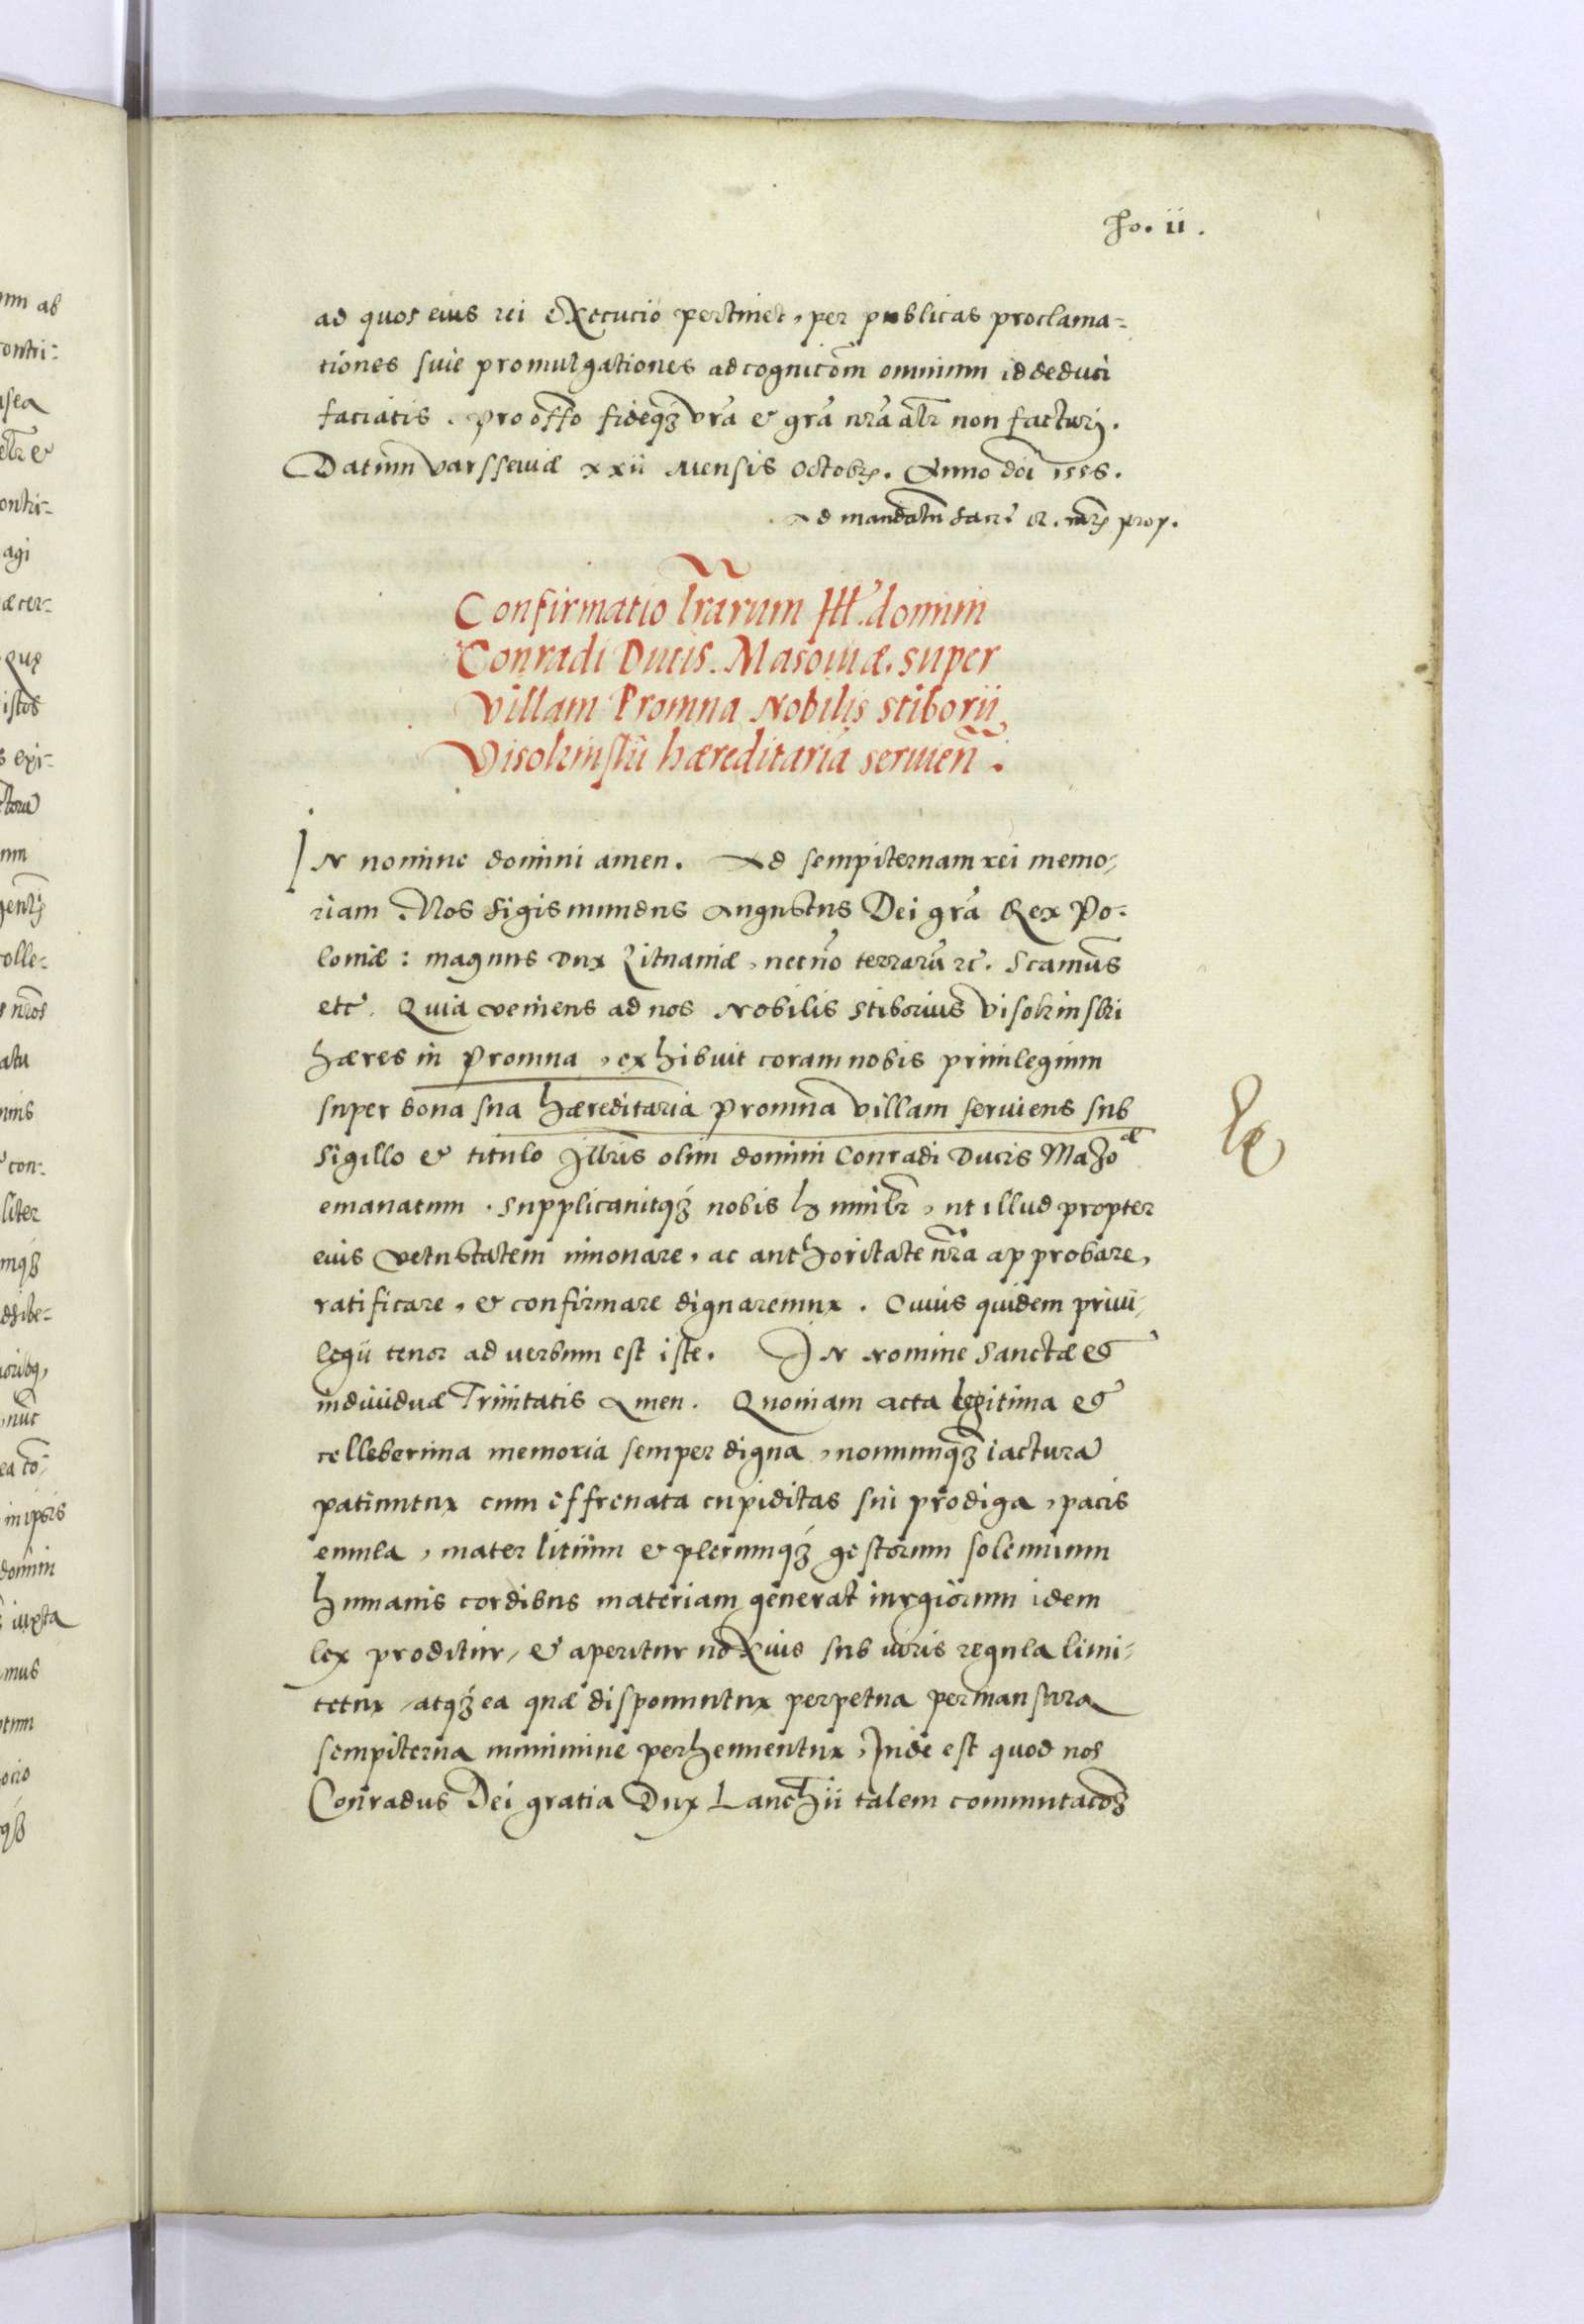 Fo. ii.
ad quos eius rei execucio pertinet, per publicas proclama=
tiones siue promulgationes ad cognicõm omnium id deduci
faciatis. pro offo fideqз vrã & grã nrã alr non facturi.
Datum varsseuiæ xxii mensis octobr. Anno doi 1556.
Ad mandatũ sacr. R. mtis prop.
Confirmatio lrarum Ill. domini
Conradi Ducis. Masouiæ. super
villam Promna Nobilis stiborii
Visokinskii hæreditaria seruieñ.
IN nomine domini amen. Ad sempiternam rei memo,
riam Nos Sigismundus Augustus Dei grã Rex Po.
loniæ: magnus Dux Lituaniæ, necnõ terrarũ rc. Scamus
etc. Quia veniens ad nos Nobilis Stiborius visokinski
hæres in Promna, exhibuit coram nobis priuilegium
super bona sua hæreditaria Promna villam seruiens sub
sigillo & titulo Illris olim domini Conradi Ducis Mazoæ
emanatum. supplicauitqз nobis humilr, ut illud propter
eius vetustatem innouare, ac authoritate nrã approbare,
ratificare, & confirmare dignaremur. Cuius quidem priui,
legii tenor ad uerbum est iste. IN Nomine Sanctæ et
indiuiduæ Trinitatis Amen. Quoniam acta legitima et
celleberima memoria semper digna, nonnunqз iactura
patiuntur cum effrenata cupiditas sui prodiga, pacis
emula, mater litium & plerumqз gestorum solemnium
humanis cordibus materiam generat iurgiorum idem
lex proditur, & aperitur noxius sub iuris regula limi,
tetur, atqз ea quæ disponuntur perpetua permansura
sempiterna munimine perhennentur, Inde est quod nos
Conradus Dei gratia Dux Lanchii talem commutacoз